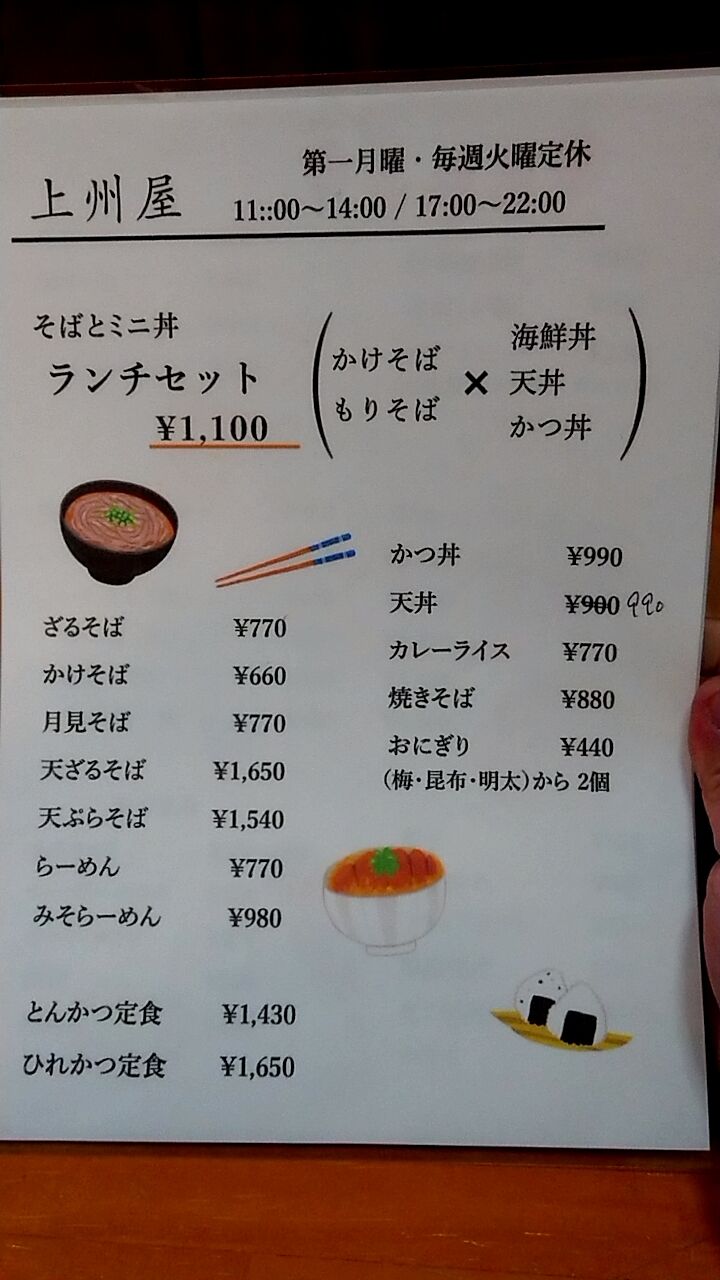 上州屋
第一月曜・毎週火曜定休
11::00～14:00 / 17:00～22:00
そばとミニ丼
ランチセット
¥1,100
かけそば
もりそば
×
海鮮丼
天丼
かつ丼
ざるそば ¥770
かけそば ¥660
月見そば ¥770
天ざるそば ¥1,650
天ぷらそば ¥1,540
らーめん ¥770
みそらーめん ¥980
とんかつ定食 ¥1,430
ひれかつ定食 ¥1,650
かつ丼 ¥990
天丼 ¥900 990
カレーライス ¥770
焼きそば ¥880
おにぎり ¥440
（梅・昆布・明太）から 2個